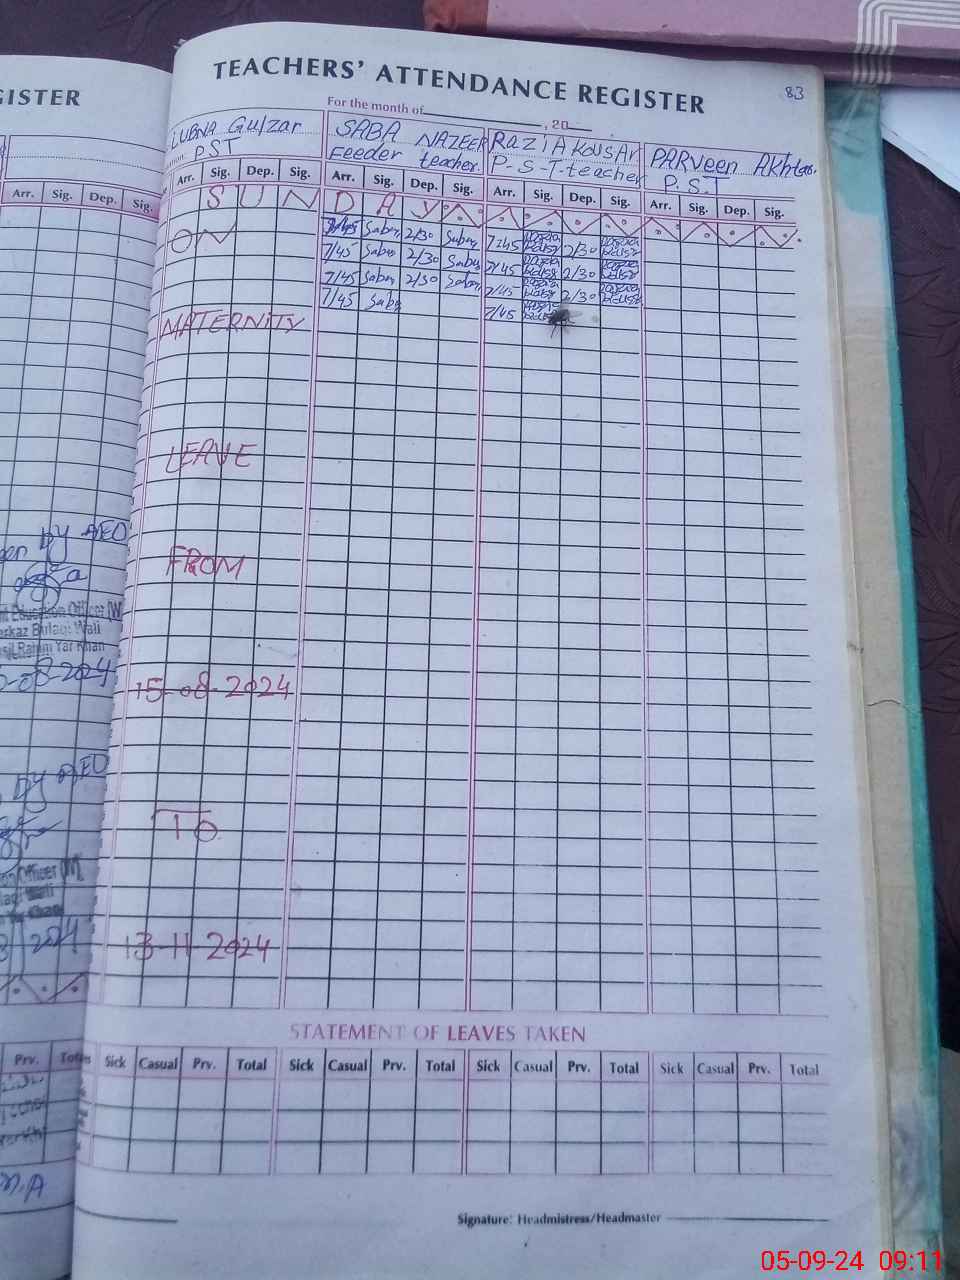 GISTER
Arr. Sig. Dep. Sig.
by AEO
Education Officer (W
Wali
Rahim Yar Khan
-08-2024
by AEO
Officer (W)
Wali
2024
Prv. Totals
TEACHERS' ATTENDANCE REGISTER
83
For the month of , 20
LUBNA Gulzar
PST
SABA NAZEER
Feeder teacher.
RaziA KousAr
P-S-T-teacher
PARveen Akhtar.
P.S.T
Arr. Sig. Dep. Sig. Arr. Sig. Dep. Sig. Arr. Sig. Dep. Sig. Arr. Sig. Dep. Sig.
S U N D A y
7/45 Saba 2/30 Saba 7:45 2/30
7/45 Saba 2/30 Saba 7/45 2/30
7/45 Saba 2/30 Saba 7/45 2/30
7/45 Saba 7/45
ON
MATERNITY
LEAVE
FROM
15-08-2024
TO
13-11-2024
STATEMENT OF LEAVES TAKEN
Sick Casual Prv. Total Sick Casual Prv. Total Sick Casual Prv. Total Sick Casual Prv. Total
Signature: Headmistress/Headmaster
05-09-24 09:11